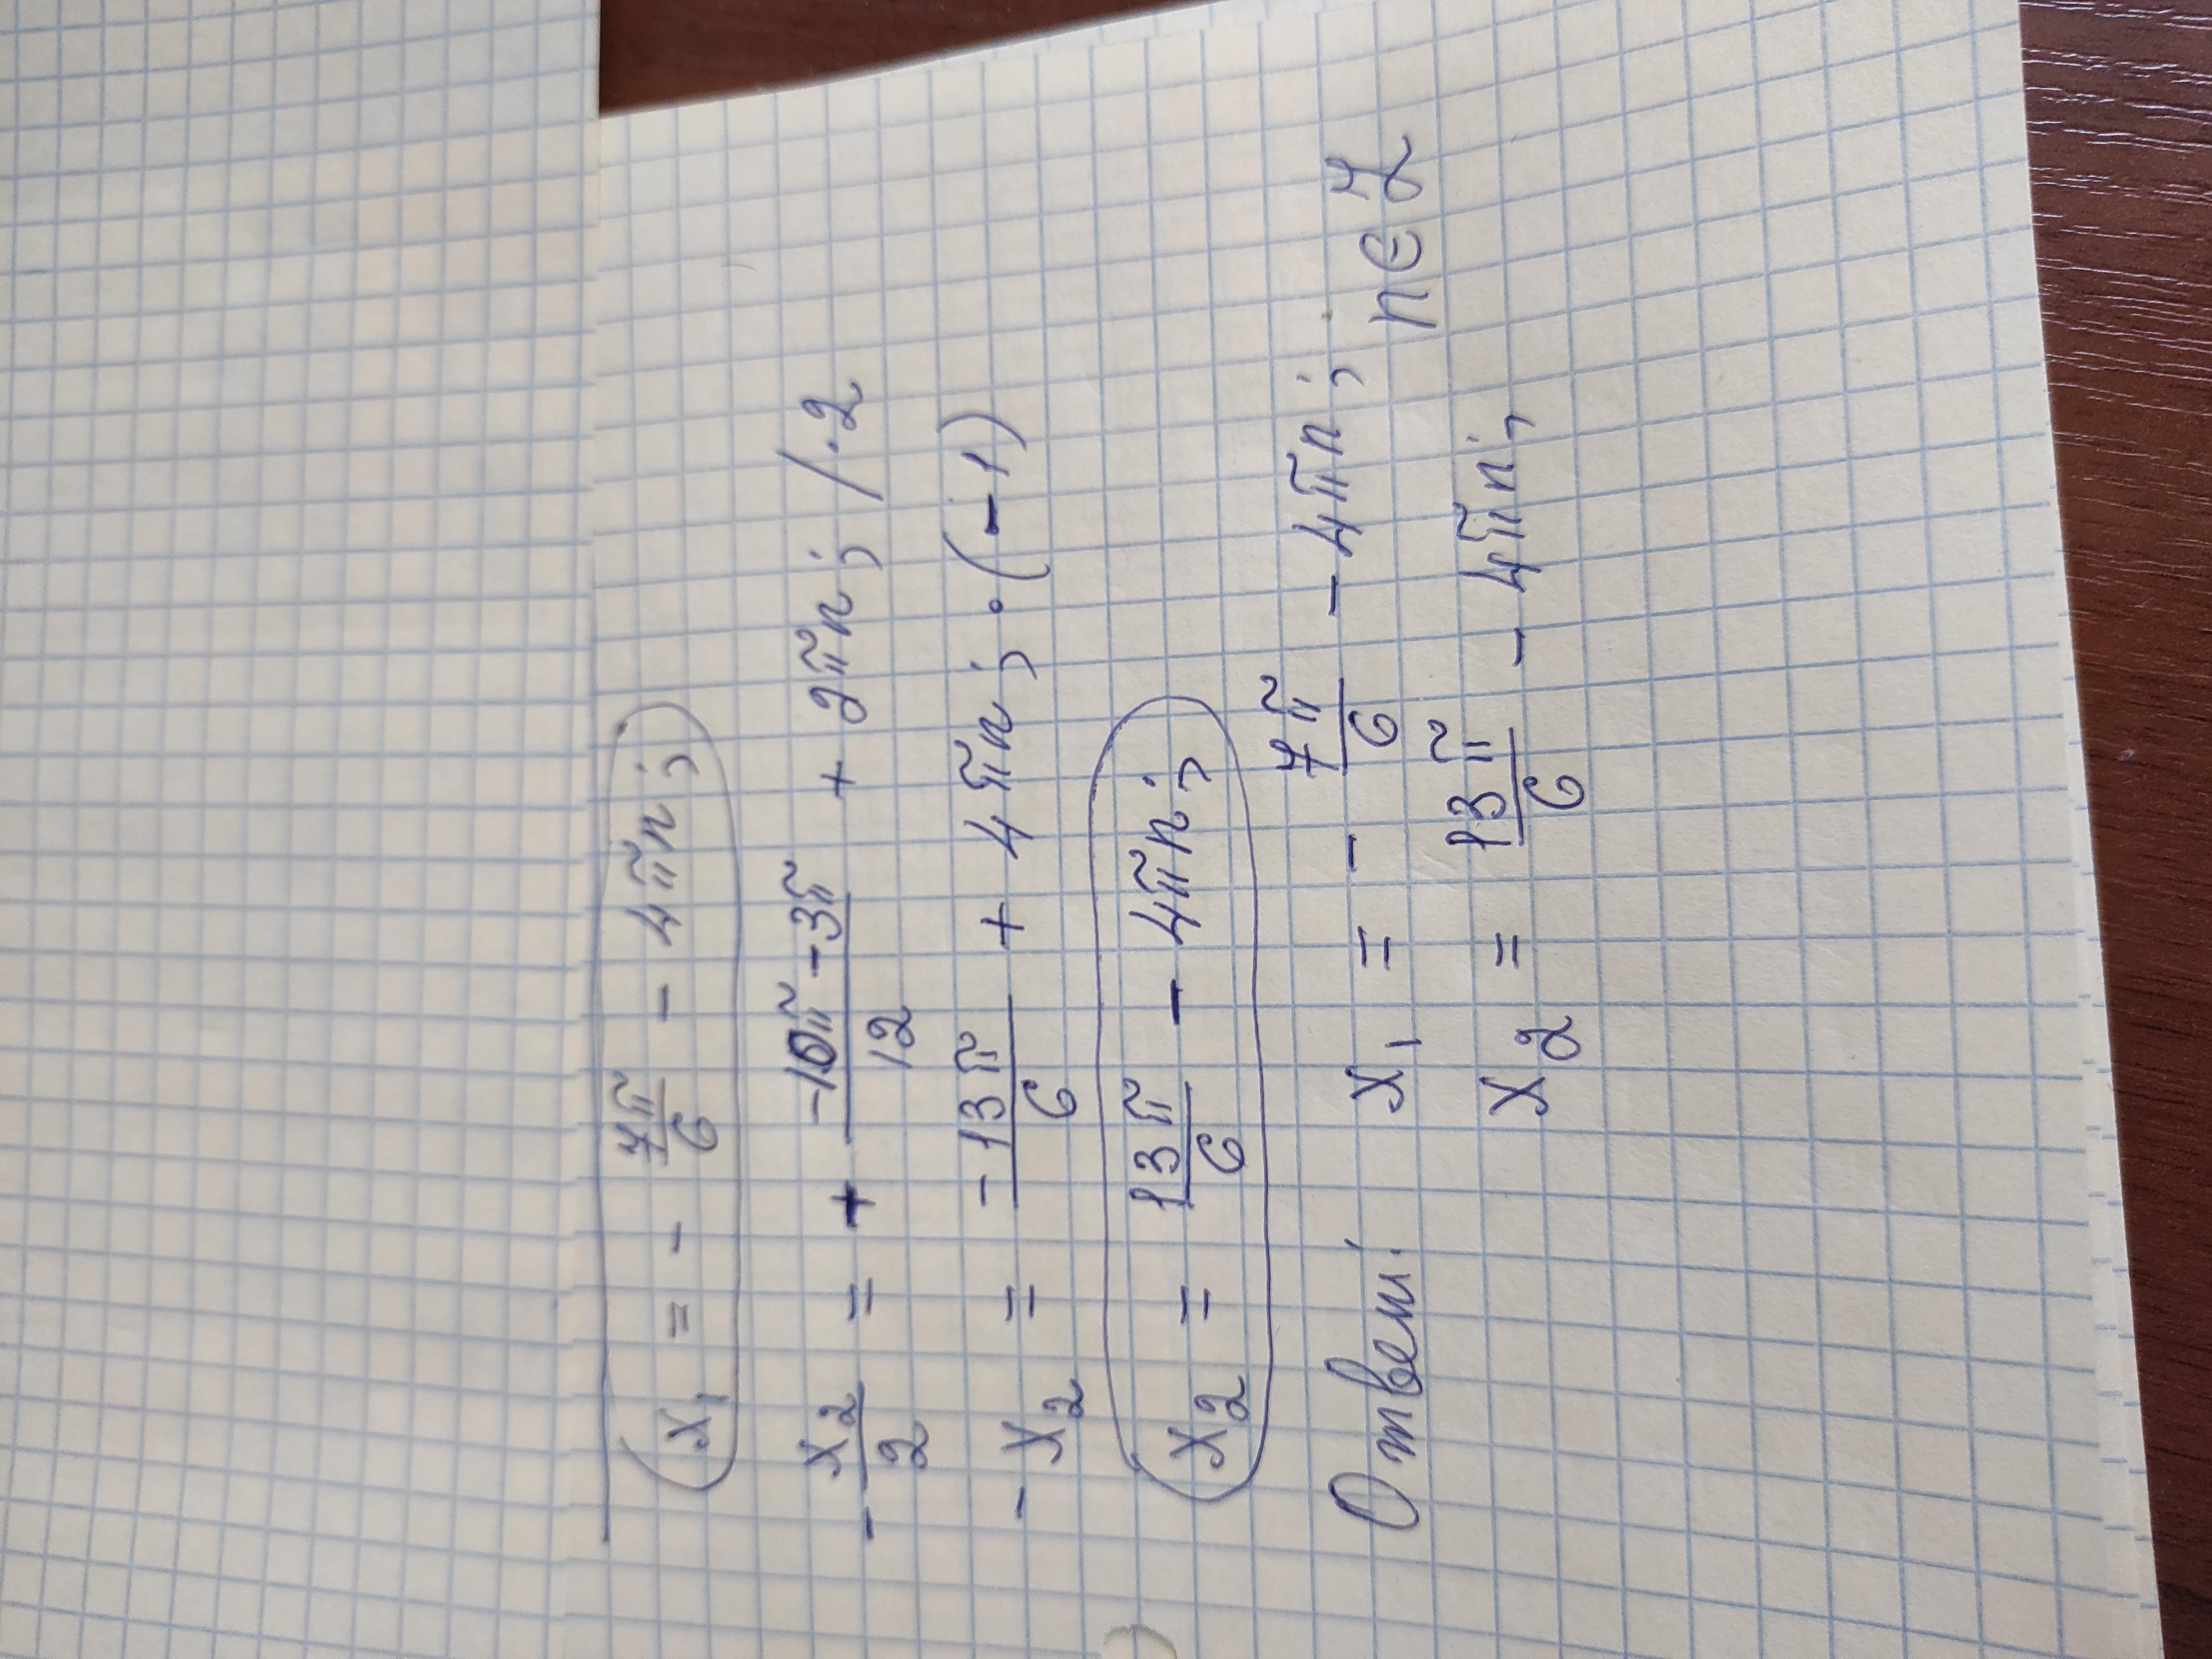 x₁ = - 7π/6 - 4πn;
- x₂/2 = + (-10π - 3π)/12 + 2πn; /·2
- x₂ = -13π/6 + 4πn; ·(-1)
x₂ = 13π/6 - 4πn;
Ответ: x₁ = - 7π/6 - 4πn; n∈Z
x₂ = 13π/6 - 4πn,